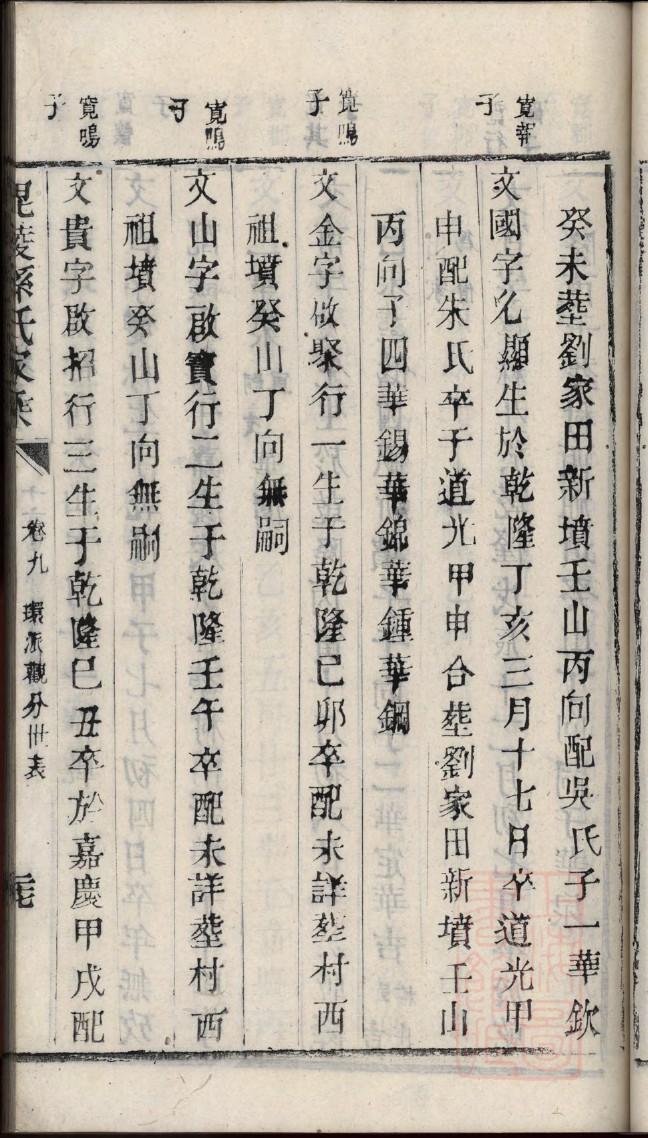 癸未塟劉家田新墳壬山丙向配吳氏子一華欽
寬報子
文國字允顯生於乾隆丁亥三月十七日卒道光甲
申配朱氏卒于道光甲申合塟劉家田新墳壬山
丙向子四華錫華錦華鍾華鋼
寬鳴子
文金字啟聚行一生于乾隆己卯卒配未詳塟村西
祖墳癸山丁向無嗣
寬鳴子
文山字啟寶行二生于乾隆壬午卒配未詳塟村西
祖墳癸山丁向無嗣
寬鳴子
文貴字啟招行三生于乾隆巳丑卒於嘉慶甲戌配
毘陵孫氏家乘
卷九 環派觀分卅表